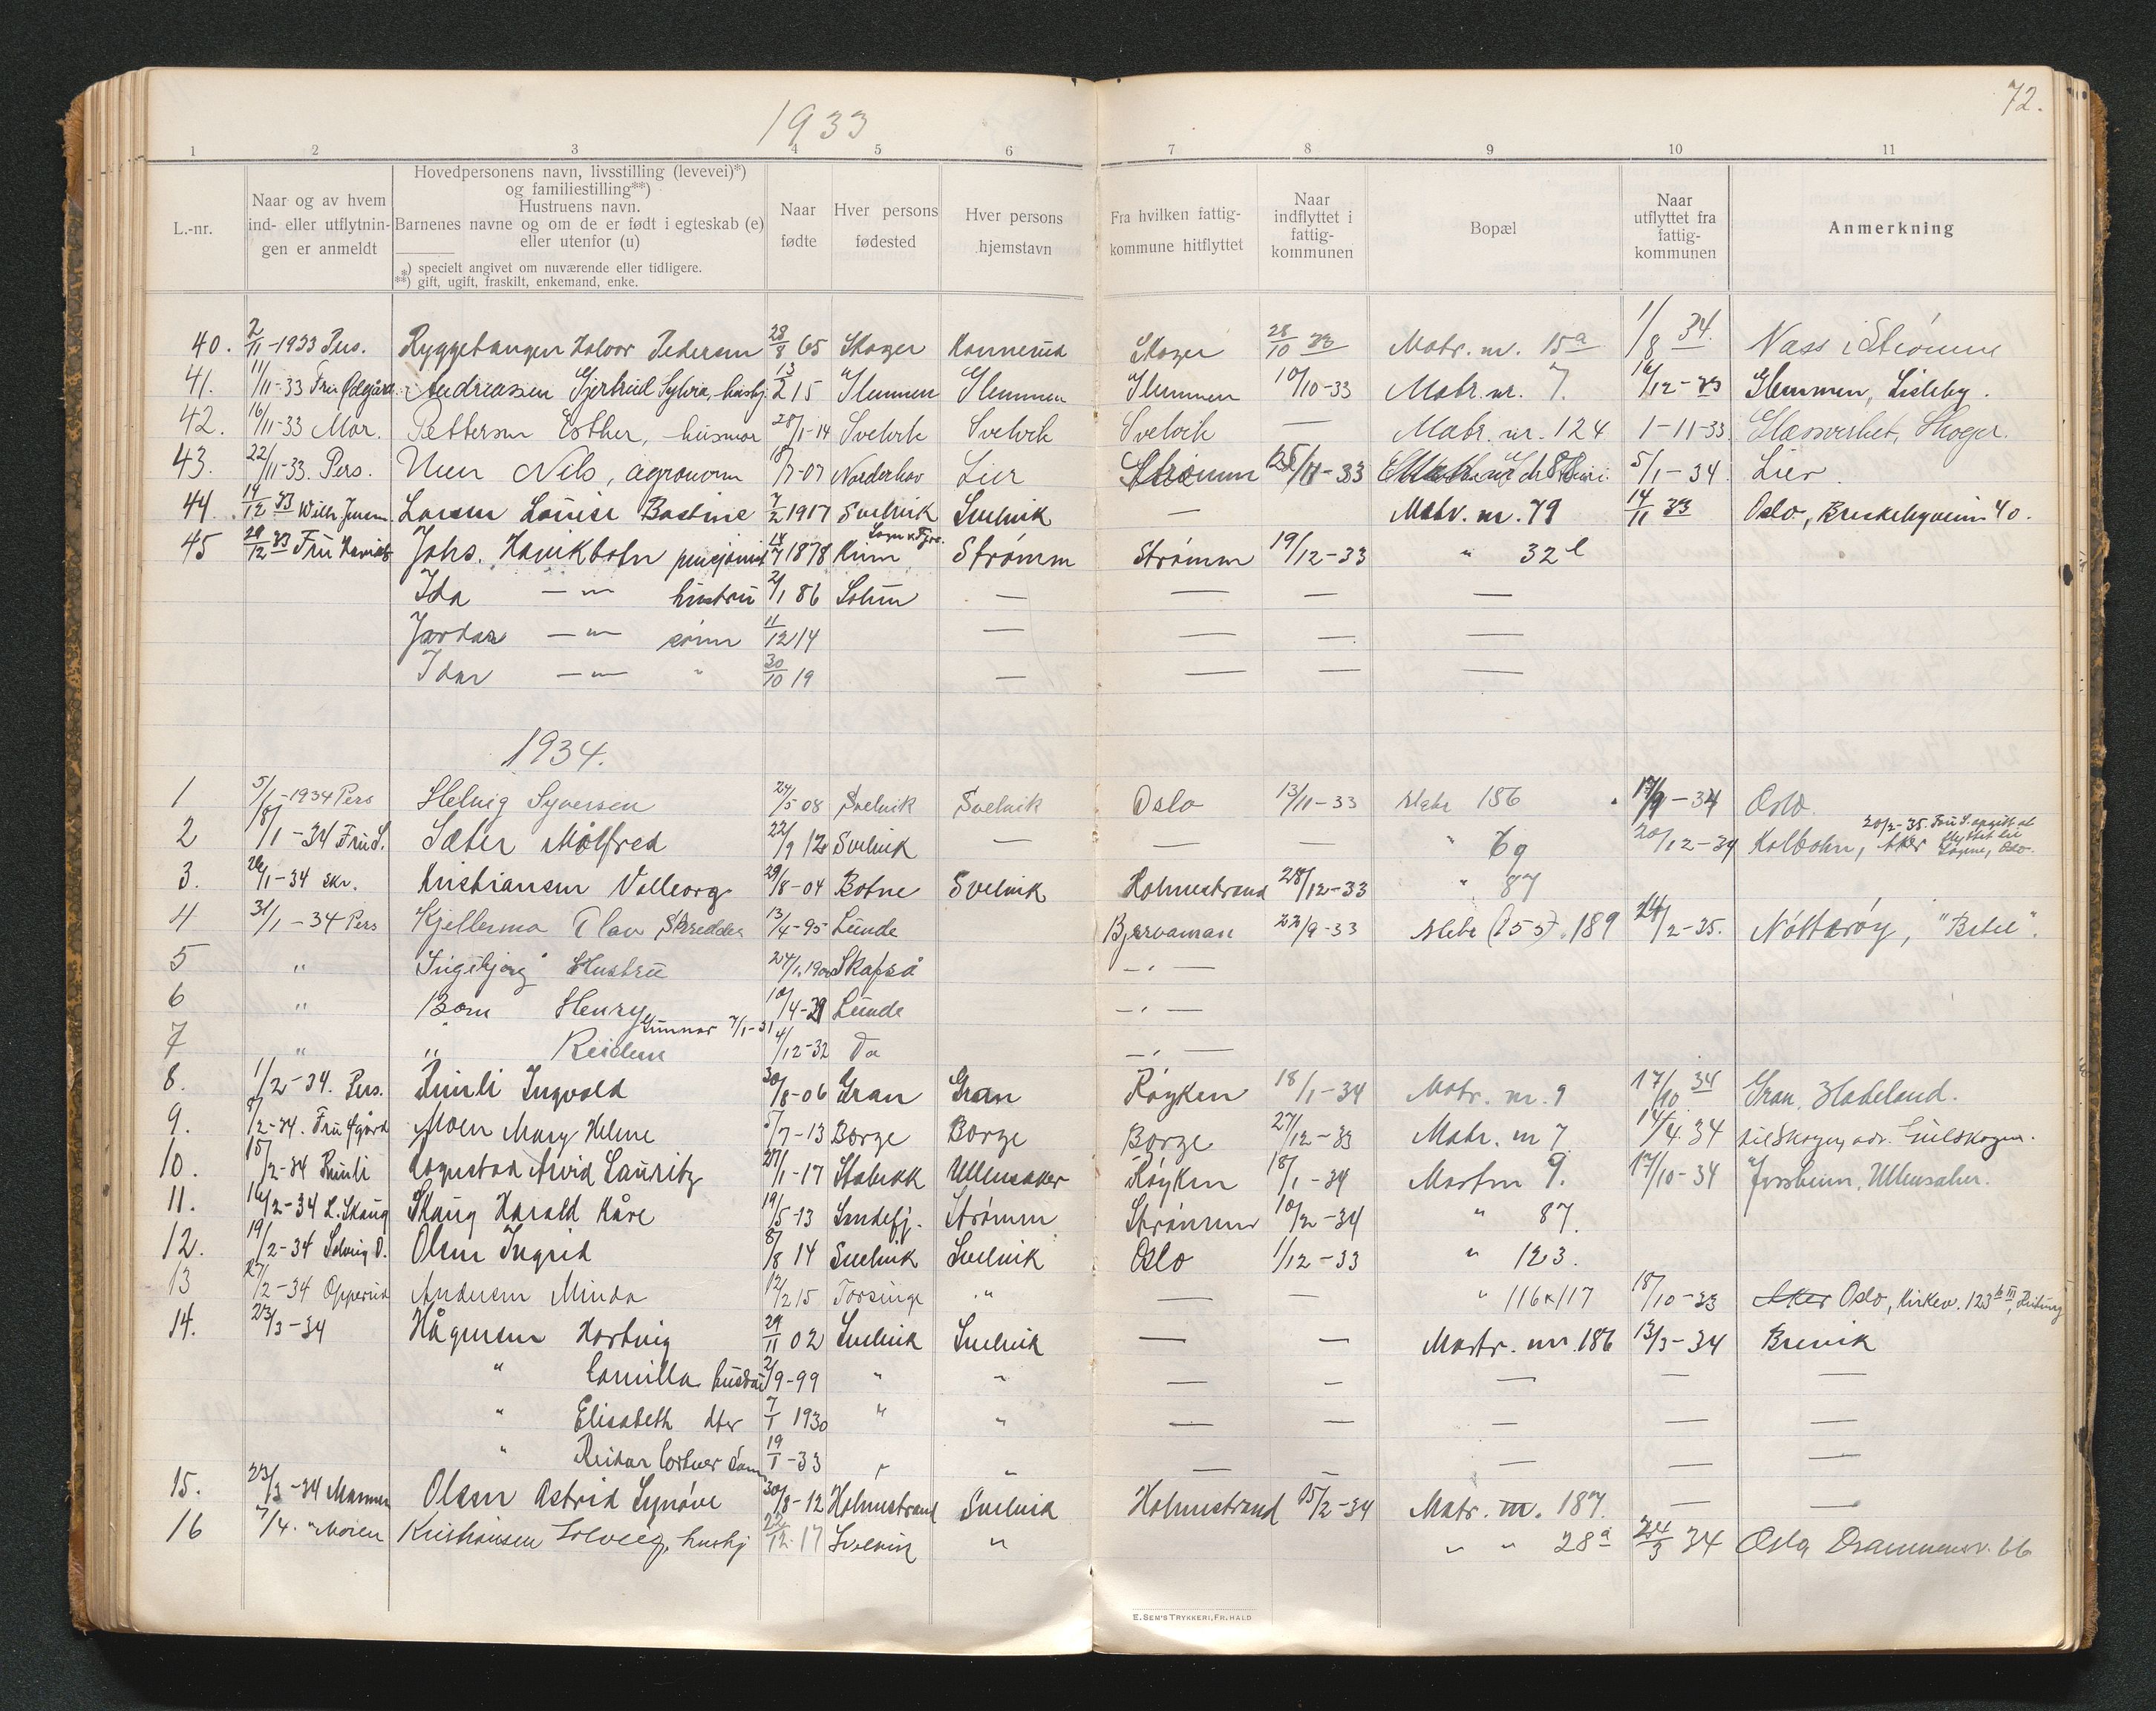 1933
72.
1 2 3 4 5 6 7 8 9 10 11
L.-nr.
Naar og av hvem ind- eller utflytnin- gen er anmeldt
Hovedpersonens navn, livsstilling (levevei)*)
og familiestilling**)
Hustruens navn.
Barnenes navne og om de er født i egteskab (e)
eller utenfor (u)
*) specielt angivet om nuværende eller tidligere.
**) gift, ugift, fraskilt, enkemand, enke.
Naar fødte
Hver persons fødested
Hver persons hjemstavn
Fra hvilken fattig- kommune hitflyttet
Naar indflyttet i fattig- kommunen
Bopæl
Naar utflyttet fra fattig- kommunen
Anmerkning
40. 2/11-1933 Pers. Ryggetangen Halvor Pedersen 28/8 65 Skoger Konnerud Skoger 28/10 33 Matr. nr. 15a 1/8 34. Næss i Strömm
41. 11/11-33 Fru Ødegård Andreassen Gjertrud Sylvia, hushj. 13/2 15 Glemmen Glemmen Glemmen 10/10-33 Matr. nr. 7. 16/12-33 Glemmen, Lisleby.
42. 16/11-33 Mor. Pettersen Esther, husmor 28/1-14 Svelvik Svelvik Svelvik — Matr. nr. 124 1-11-33 Glassverket, Skoger.
43. 22/11-33. Pers. Nils, agronom /7-07 Norderhov Lier Strömm 25/11-33 5/1-34 Lier
44. 14/12 33 Wilh Jensen Larsen Louise Bastine 7/2 1917 Svelvik Svelvik — Matr. nr. 79 14/11 33 Oslo, Breskebyveien 40.
45 28/12 33 Fru Havikb Johs. Havikbotn pensjonist 18/7 1878 Kinn Sogn & Fj. Strømm Strømm 19/12-33 " 32 b
Ida — " — hustru 2/1 86 Solum — — — —
Jardar — " — sönn 11/12 14 — — — —
Idar — " — " 30/10 19 — — — —
1934.
1 5/1-1934 Pers Helvig Syversen 24/5 08 Svelvik Svelvik Oslo 13/11-33 Matr 186 17/9-34 Oslo.
2 8/1-34 Fru S. Sæter Målfred 22/9 12 Svelvik — — — " 69 20/12-34 Kolbotn, Aker 20/2-35. Fru S. opgitt at flyttet til Oslo.
3. 26/1-34 Skr. Kristiansen Valborg 29/8-04 Botne Svelvik Holmestrand 28/12-33 " 87
4 31/1-34 Pers Kjellermo Olav Skredder 13/4-95 Lunde 22/9-33 Matr (155). 189 24/2-35. Nötterøy, "Betel".
5 " Ingebjørg Hustru 24/1.1900 Skafså — " —
6 " Barn Henry 10/4-29 Lunde — " —
Gunnar 7/1-31
7 " " Reidun 4/12-32 Do — " —
8. 1/2-34. Pers. Ruuli Ingvald 30/8-06 Gran Gran Röyken 18/1-34 Matr. nr. 9 17/10 34 Gran, Hadeland.
9. 8/2-34. Fru Ågård Moen Mary Helene 5/7-13 Borge Borge Borge 27/12-33 Matr. nr 7 14/4 34 til Skoger, adr. Gulskogen.
10. 15/2-34 Ruuli Rognstad Arvid Lauritz 27/1-17 Stabekk Ullensaker Röyken 18/1-34 Matr nr 9. 17/10-34 Jessheim, Ullensaker.
11. 16/2-34 L. Skaug Skaug Harald Kåre 19/5-13 Sandefj. Strømm Strömm 10/2-34 " 87.
12. 19/2-34 Solveig O. Olsen Ingrid 8/8 14 Svelvik Svelvik Oslo 1/12-33 " 123.
13 27/2-34 Opperud Andersen Minda 12/2 15 Torsinge " — — " 116 & 117 18/10-33 Aker Oslo, Kirkev. 123 b III,
14. 23/3-34 Hågensen Hartvig 29/11 02 Svelvik Svelvik — — Matr. nr. 186 13/3-34 Brevik
" Camilla hustru 2/9-99 " " — — — — —
" Elisabeth dtr 7/1 1930 " " — — — — —
" Reidar sönn 19/1-33 " " — — — — —
15. 23/3-34 Olsen Astrid Synöve 30/8-12 Holmestrand Svelvik Holmestrand 15/2-34 Matr. nr. 187. — —
16 7/4. " Moien Kristiansen Solveig, hushj 22/12-17 Svelvik " " " 28 a 24/3 34 Oslo, Drammensv. 66
E. SEM'S TRYKKERI, FR. HALD